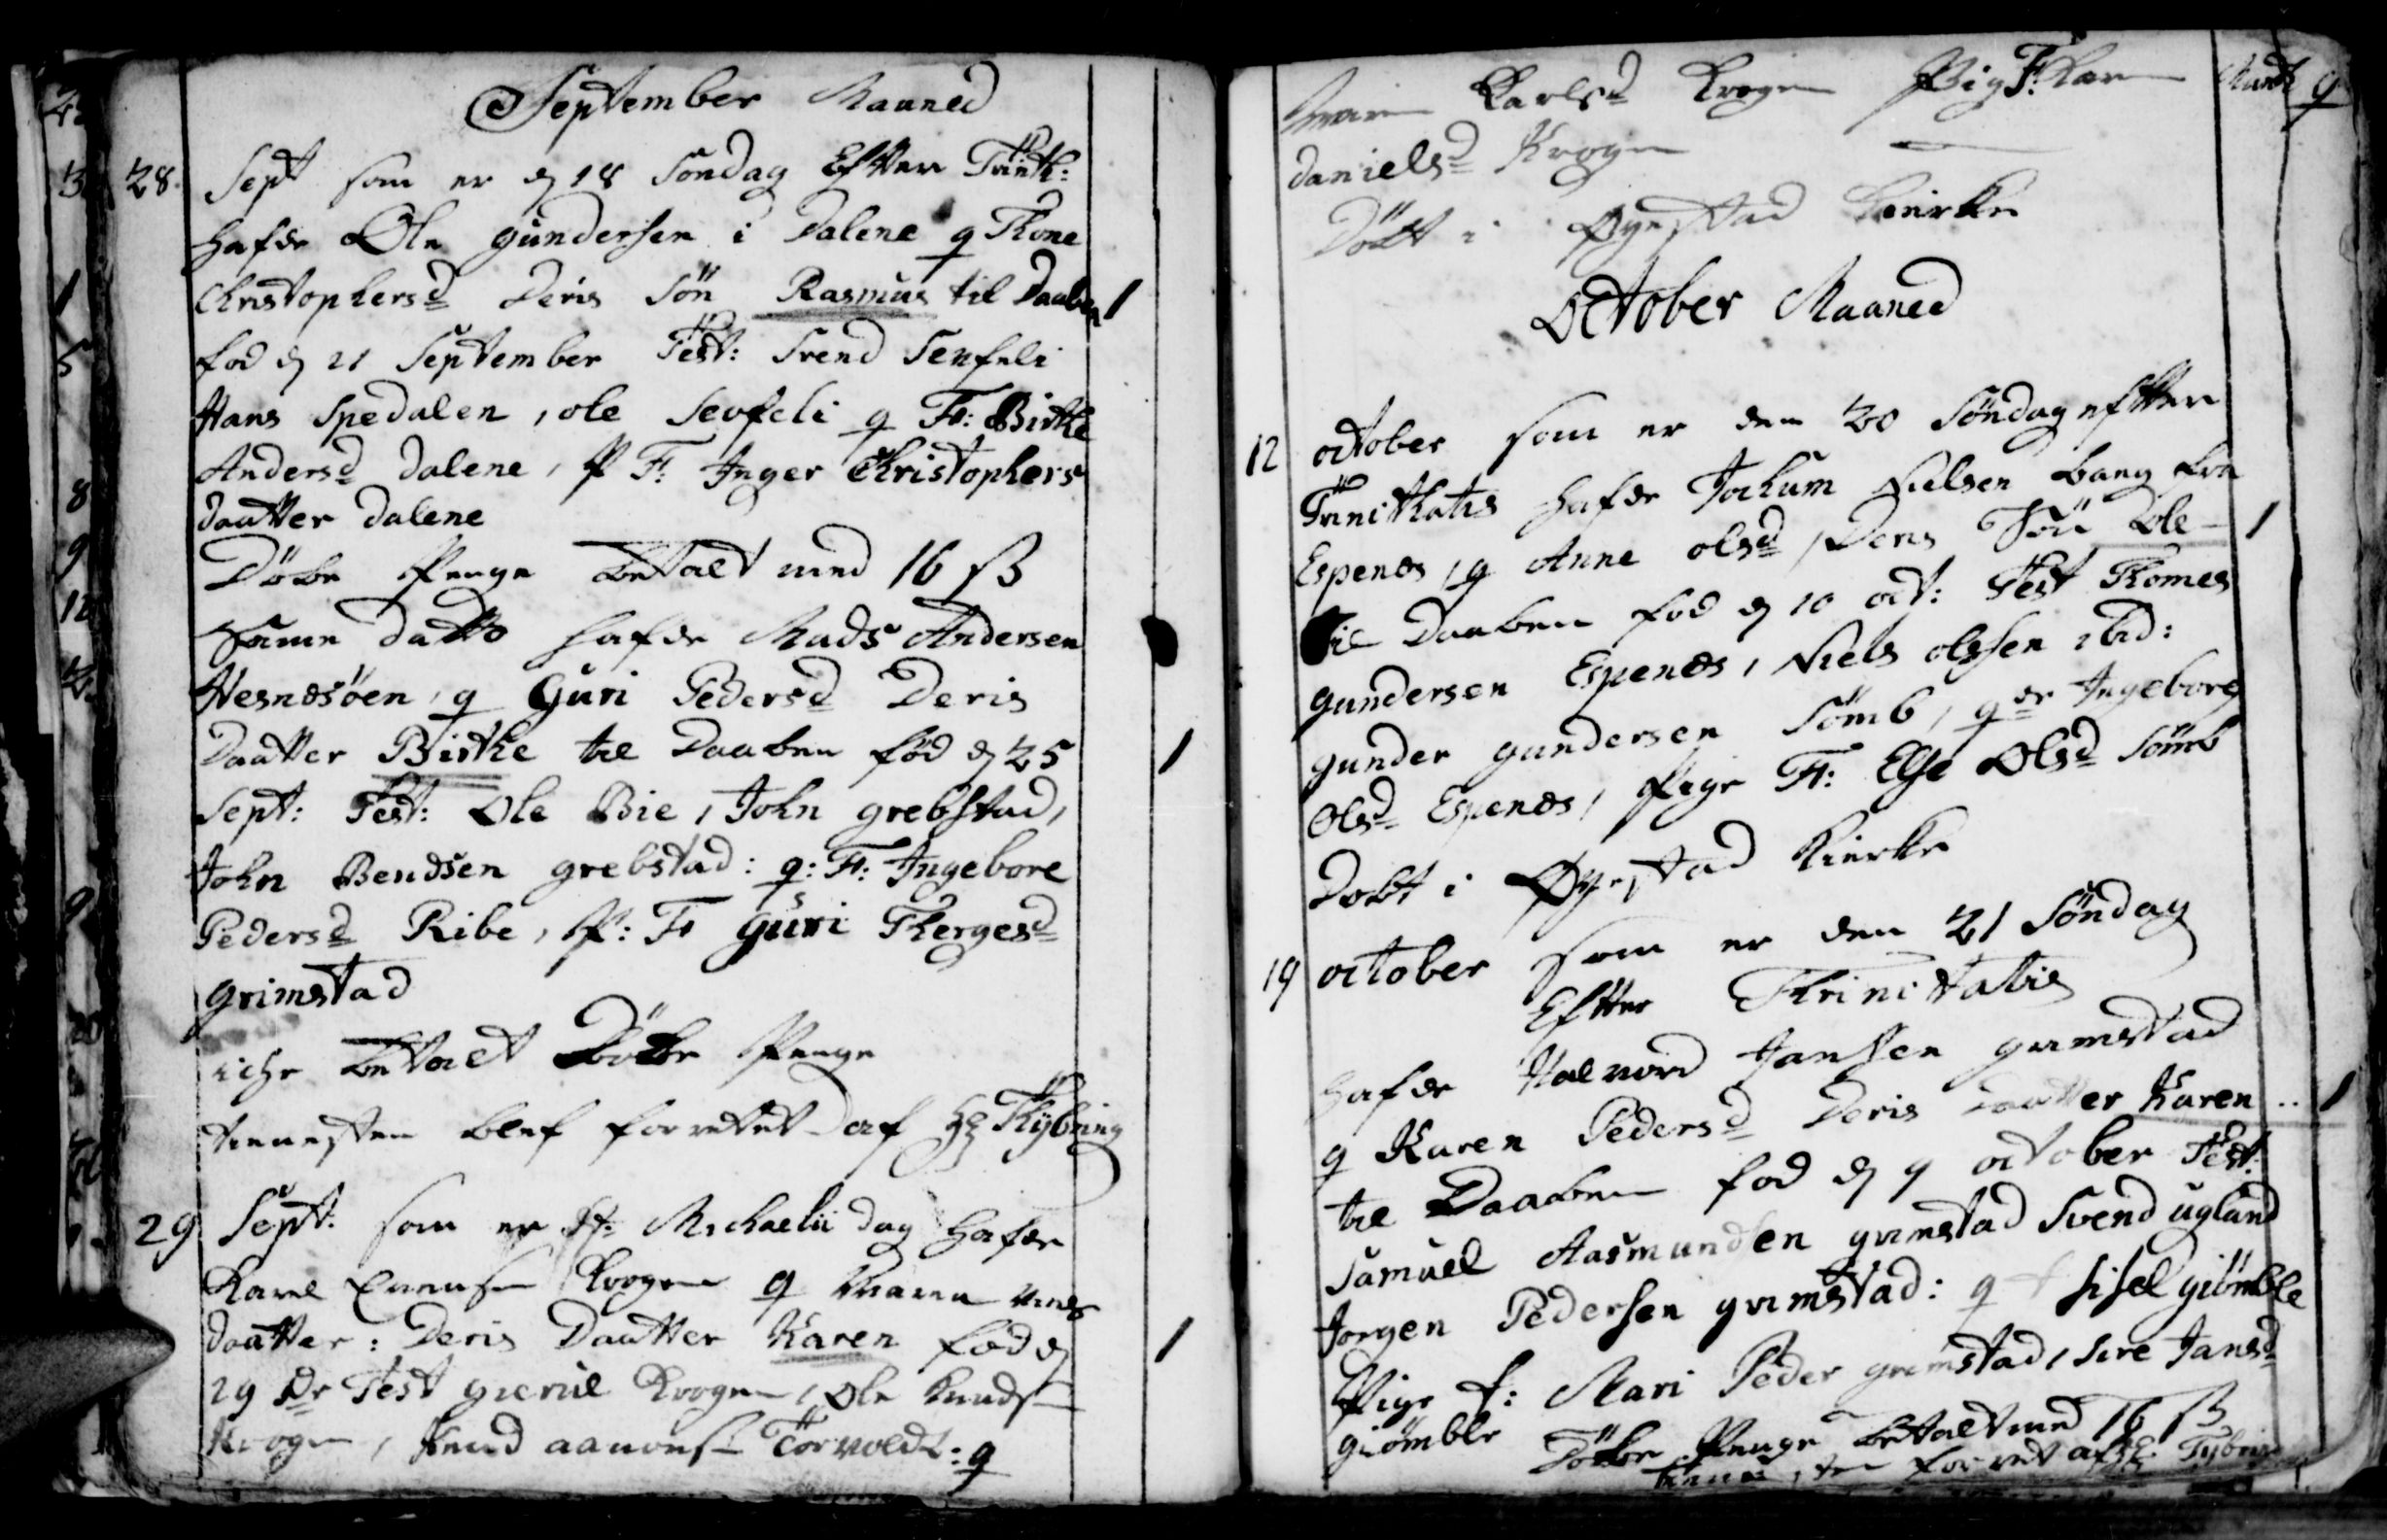 September Maaned
28. Sept som er d 18 Söndag Efter Trinth:
hafde Ole gundersen i Dalene q Kone
Christophersd Deris Sön Rasmus til Daaben 1
fod d 21 September Test: Svend Sevfeli
Hans Spedalen, ole Sevfeli q F: Birthe
Andersd Dalene, P F: Inger Christophers
daatter dalene
Döbe Penge betalt med 16 ß
Samme datto hafde Mads Andersen
Hesnæsöen, q Guri Pedersd Deris
Daatter Birthe til Daaben föd d 25 1
Sept: Test: Ole Bie, John grebstad,
John Bendsen grebstad: q: F: Ingebore
Pedersd Ribe, P: F Guri Thergesd
grimstad
iche betalt Döbe Penge
tienesten blef forrettet af Hr Tybring
29 Sept: som er St: Michaelii dag hafde
Karel Evensen Krogen q Maren
daatter: Deris Daatter Karen fod d 1
29 Dr Test Krogen, Ole Knuds
Krogen, Knud aanons Torvolds: q
Karlsd Krogen Pig F: Karen
danielsd Krogen
Döbt i Øyestad Kierke
October Maaned
12 october som er den 20 Söndag efter
Trinithatis hafde Jochum Nielsen bang fra
Espenes, q Anne olsd, Deris Sön Ole 1
til Daaben fod d 10 oct: Test Thomes
gundersen Espenes, Niels olssen ibid:
gunder gundersen Sömb, q Ingeborg
Olsd Espenes, Pige F: Else Olsd Sömb
Döbt i Øyestad Kierke
19 october som er den 21 Söndag
Efter Thrinitatis
hafde Halvord Jansen grimstad
q Karen Pedersd Deris Daatter Karen 1
til Daaben fod d 9 october Test:
Samuel Aasmundsen grimstad Svend ugland
Jorgen Pedersen grimstad: q Sisel giömble
Pige f: Mari Peder grimstad, Sire Jansd
giömble Döbe Penge betalt med 16 ß
forret af Hr: Tybring